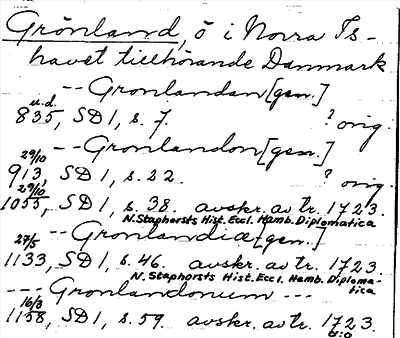 Grönland, ö i Norra Is-
havet tillhörande Danmark
-- Gronlandan [gen.]
u.d.
835, SD 1, s. 7. ? orig.
-- Gronlandon [gen.]
29/10
913, SD 1, s. 22. ? orig.
29/10
1055, SD 1, s. 38. avskr. av tr. 1723.
N. Staphorsts Hist. Eccl. Hamb. Diplomatica
-- Gronlandiæ [gen.]
27/5
1133, SD 1, s. 46. avskr. av tr. 1723.
N. Staphorsts Hist. Eccl. Hamb. Diploma-
tica
--- Gronlandonum ---
16/3
1158, SD 1, s. 59. avskr. av tr. 1723.